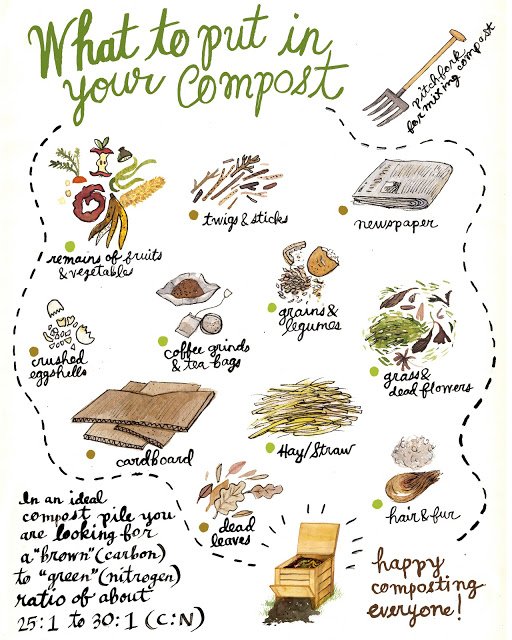 What to put in
your Compost
pitchfork
for mixing compost
remains of fruits
& vegetables
twigs & sticks
newspaper
crushed
eggshells
coffee grinds
& tea bags
grains &
legumes
grass &
dead flowers
cardboard
Hay/Straw
dead
leaves
hair & fur
In an ideal
compost pile you
are looking for
a "brown" (carbon)
to "green" (nitrogen)
ratio of about
25:1 to 30:1 (C:N)
happy
composting
everyone!